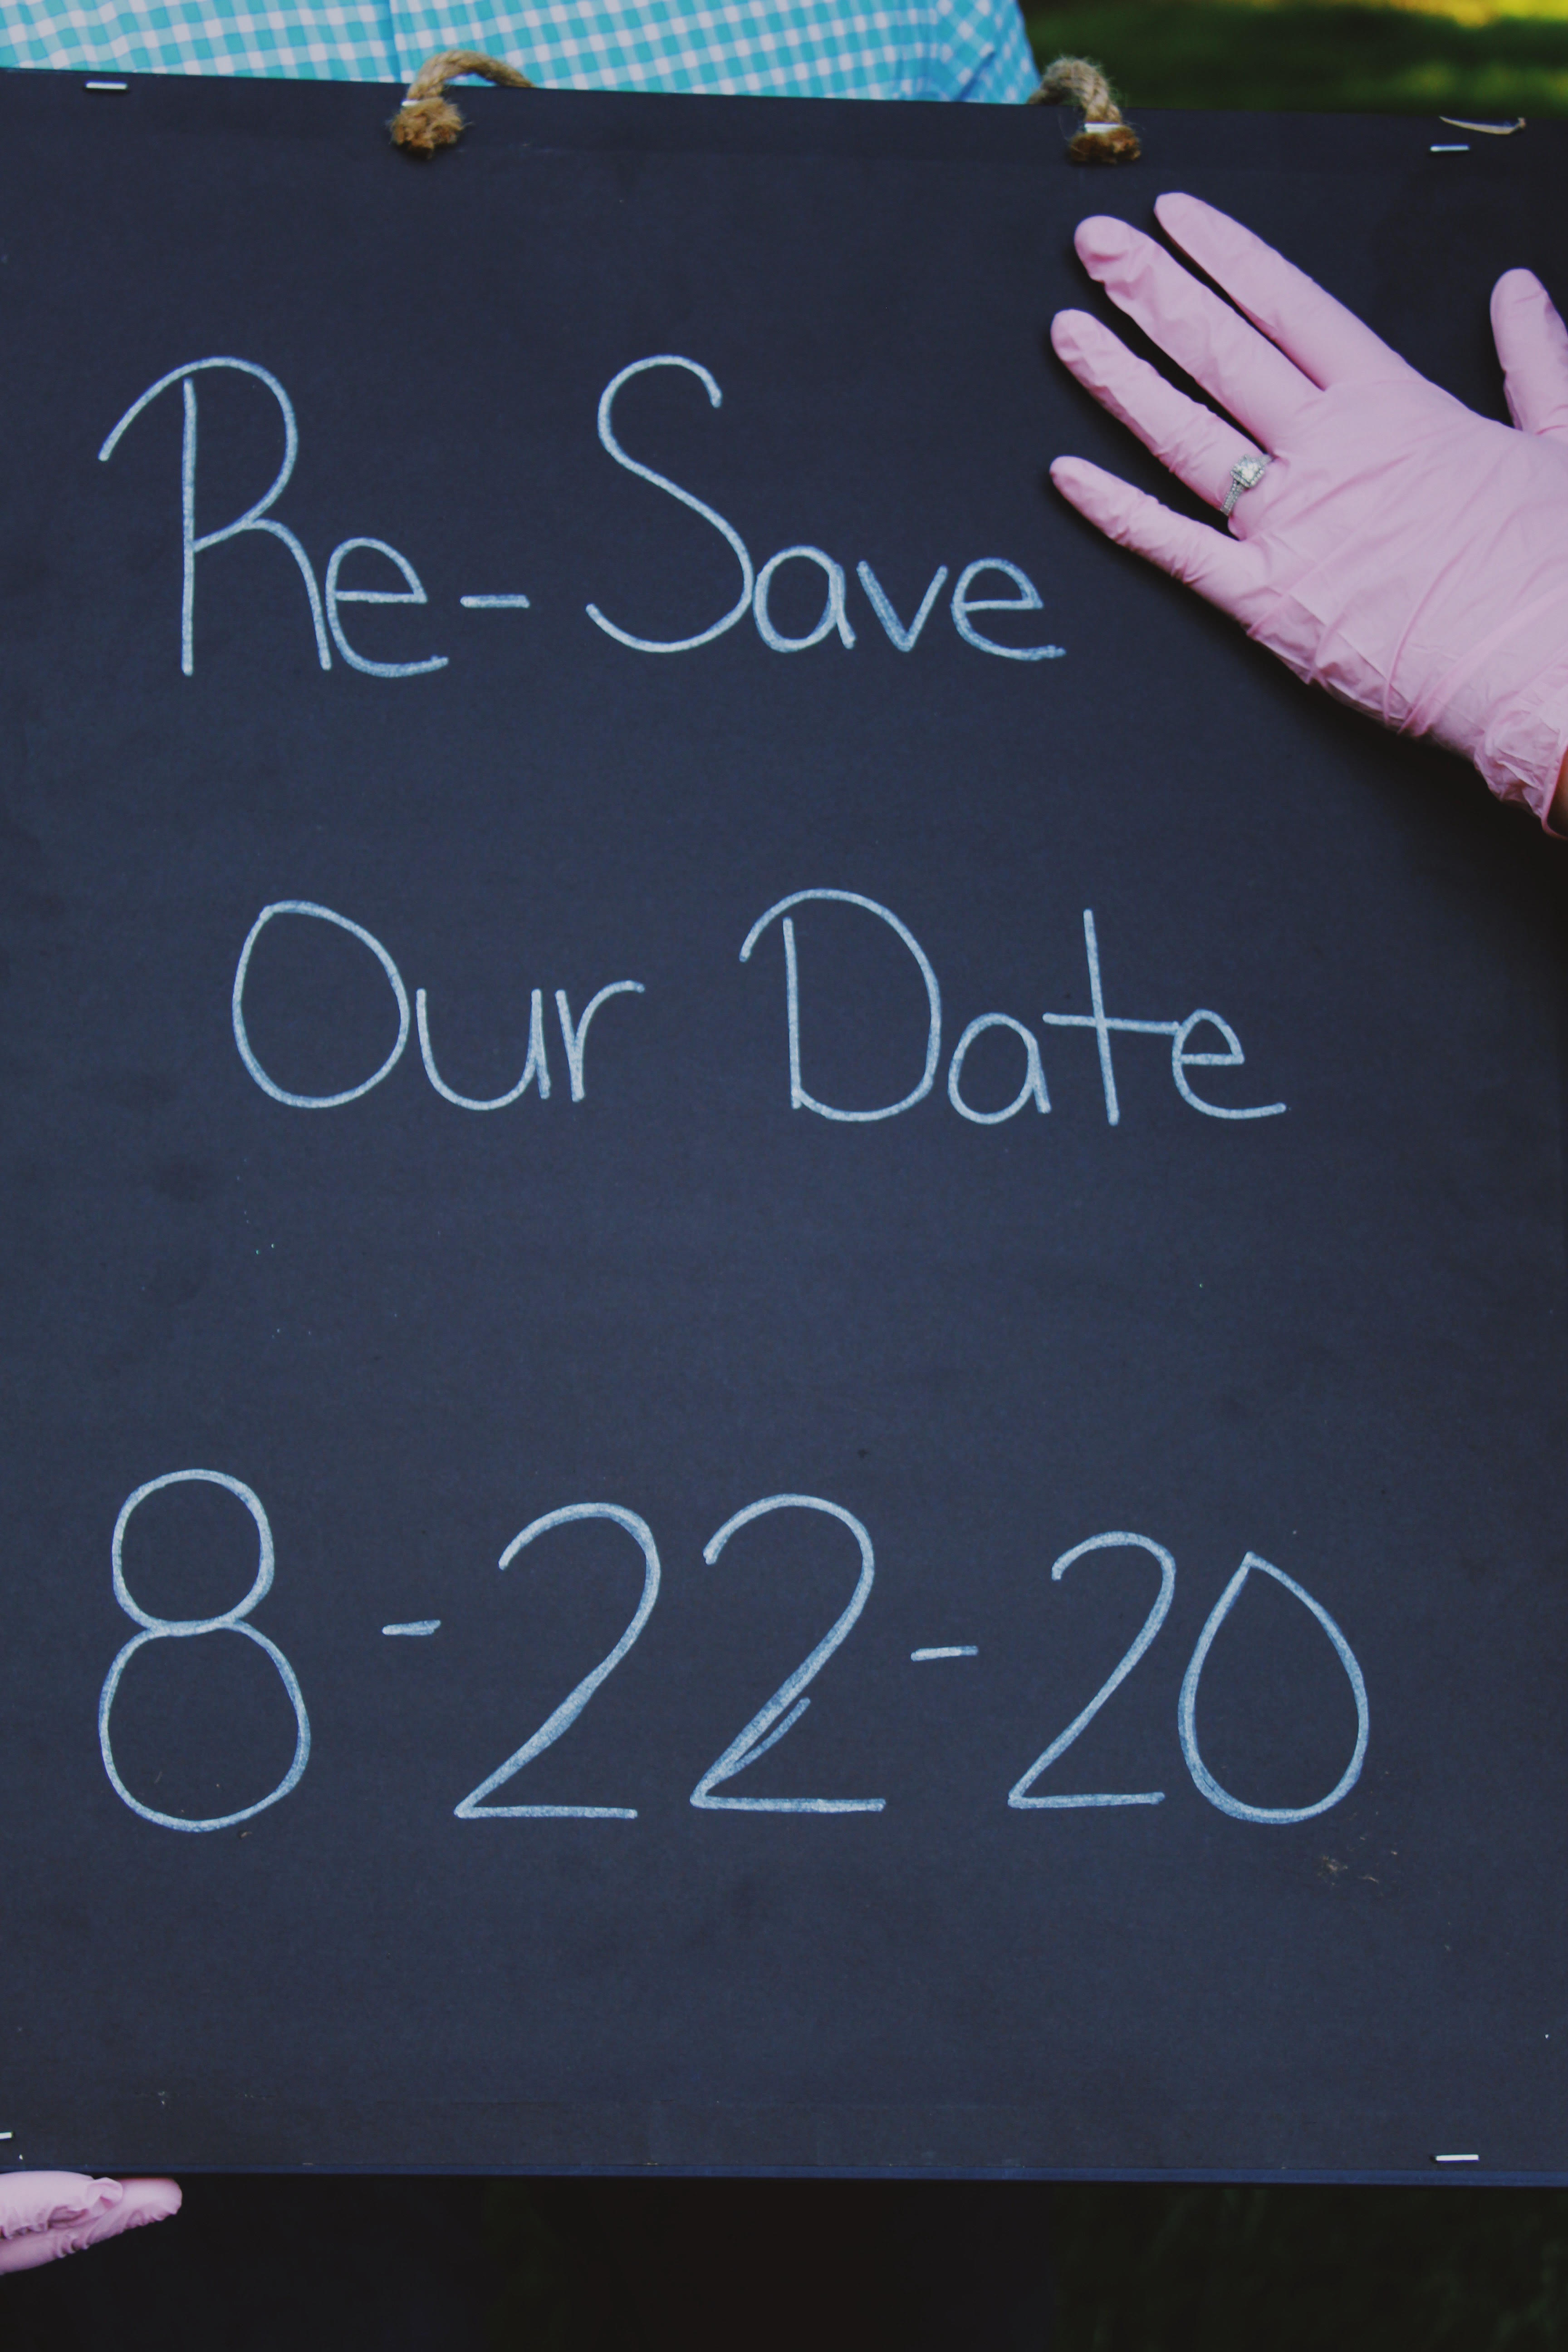 Re-Save
Our Date
8-22-20